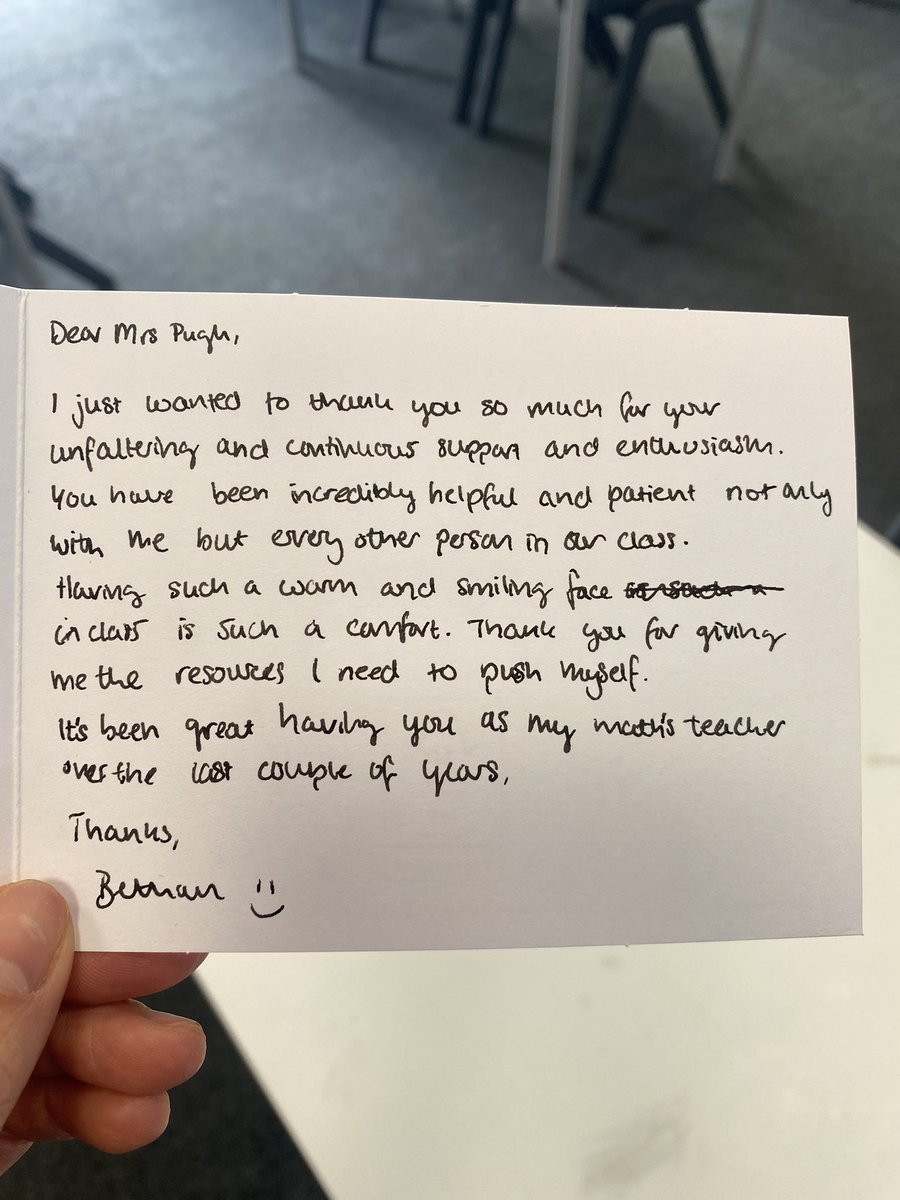 Dear Mrs Pugh,
I just wanted to thank you so much for your
unfaltering and continuous support and enthusiasm.
You have been incredibly helpful and patient not only
with me but every other person in our class.
Having such a warm and smiling face
in class is such a comfort. Thank you for giving
me the resources I need to push myself.
It's been great having you as my maths teacher
over the last couple of years,
Thanks,
Bethan